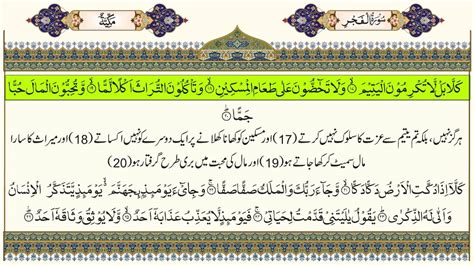 سُوْرَةُ الْفَجْرِ
مَكِّيَّةٌ
كَلَّا بَلْ لَّا تُكْرِمُوْنَ الْيَتِيْمَ ۙ وَلَا تَحٰٓضُّوْنَ عَلٰى طَعَامِ الْمِسْكِيْنِ ۙ وَتَاْكُلُوْنَ التُّرَاثَ اَكْلًا لَّمًّا ۙ وَّتُحِبُّوْنَ الْمَالَ حُبًّا
جَمًّا ؕ
ہرگز نہیں، بلکہ تم یتیم سے عزت کا سلوک نہیں کرتے (17) اور مسکین کو کھانا کھلانے پر ایک دوسرے کو نہیں اکساتے (18) اور میراث کا سارا
مال سمیٹ کر کھا جاتے ہو (19) اور مال کی محبت میں بری طرح گرفتار ہو (20)
كَلَّاۤ اِذَا دُكَّتِ الْاَرْضُ دَكًّا دَكًّا ۙ وَّجَآءَ رَبُّكَ وَالْمَلَكُ صَفًّا صَفًّا ۚ وَجِایْٓءَ يَوْمَئِذٍۭ بِجَهَنَّمَ ۙ يَوْمَئِذٍ يَّتَذَكَّرُ الْاِنْسَانُ
وَاَنّٰى لَهُ الذِّكْرٰى ؕ يَقُوْلُ يٰلَيْتَنِيْ قَدَّمْتُ لِحَيَاتِيْ ۚ فَيَوْمَئِذٍ لَّا يُعَذِّبُ عَذَابَهٗۤ اَحَدٌ ۙ وَّلَا يُوْثِقُ وَثَاقَهٗۤ اَحَدٌ ؕ